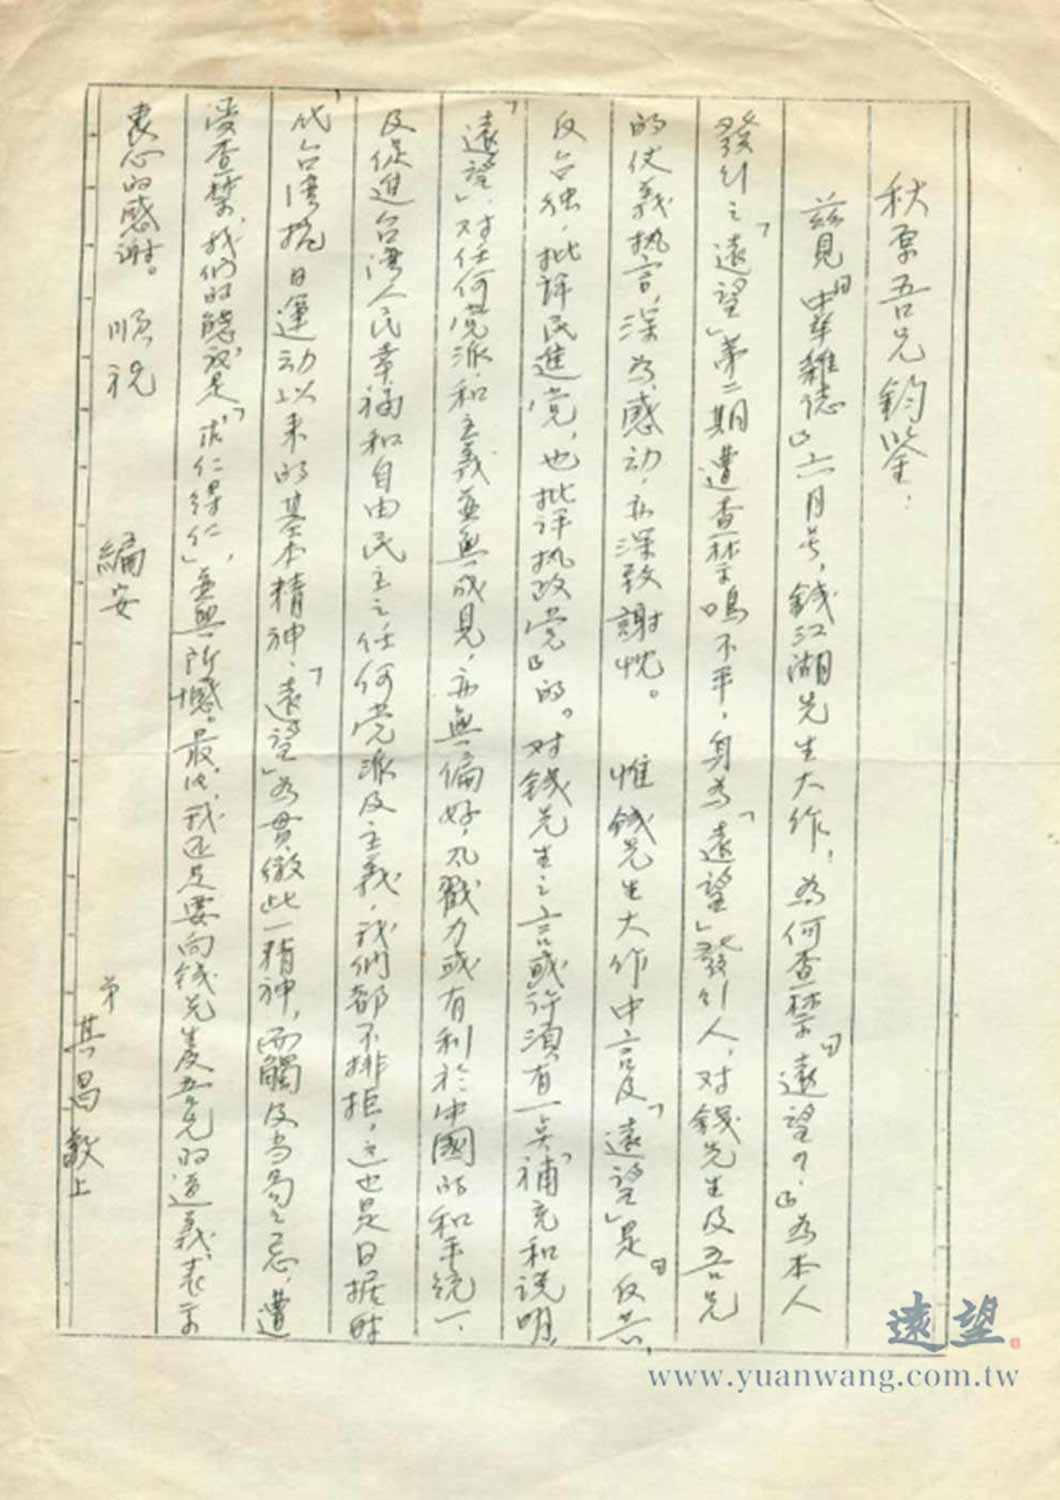 秋原吾兄鈞鑒：
茲見『中華雜誌』六月号，錢江湖先生大作，為何查禁『遠望？』為本人
發行之「遠望」第二期遭查禁鳴不平，身為「遠望」發行人，对錢先生及吾兄
的仗义执言，深為感动，並深致謝忱。 惟錢先生大作中言及「遠望」是『反共，
反台独，批評民進党，也批评执政党』的。对錢先生之言或许須有一点補充和说明，
「遠望」，对任何党派和主義並無成見，亦無偏好，凡戮力或有利於中國的和平统一、
及促進台湾人民幸福和自由民主之任何党派及主義，我们都不排拒，这也是日据时
代，台湾抗日運动以来的基本精神，「遠望」為贯徹此一精神，而觸及当局之忌，遭
受查禁，我们的態度是「求仁得仁」，並無所憾。最後，我还是要向錢先生及吾兄的道義，表示
衷心的感謝。 順祝
編安
弟 其昌敬上
遠望
www.yuanwang.com.tw